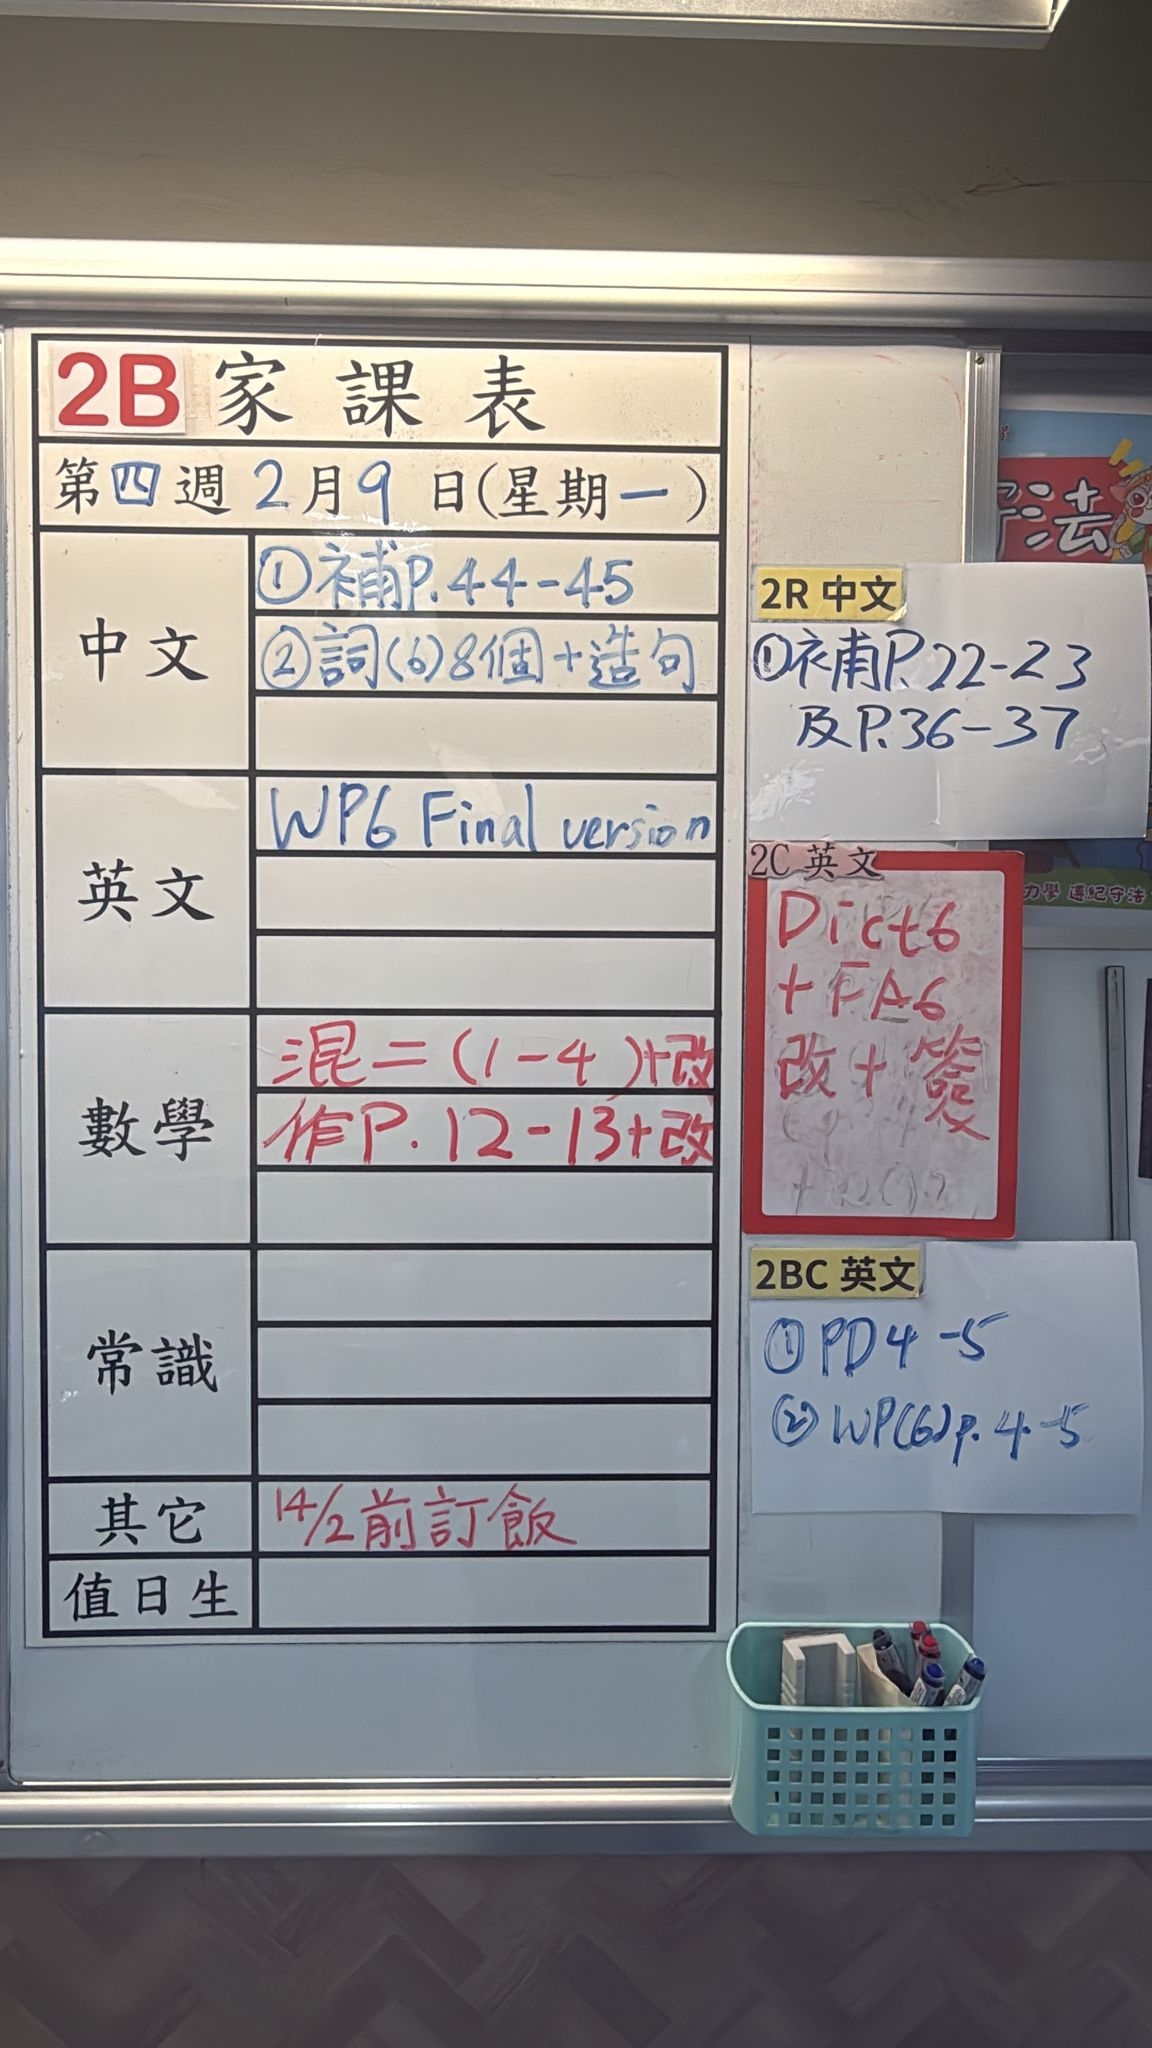 2B 家課表
第四週 2月9日(星期一)
中文
①補P.44-45
②詞(6)8個+造句
英文
WP6 Final version
數學
混二(1-4)+改
作P.12-13+改
常識
其它
14/2前訂飯
值日生
2R 中文
①補P.22-23
及P.36-37
2C 英文
Dict6
+FA6
改+簽
2BC 英文
①PD4-5
②WP(6)p.4-5
守法
力學 遵紀守法